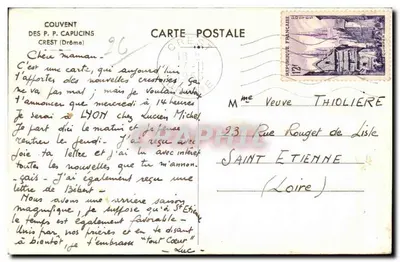 COUVENT
DES P. P. CAPUCINS
CREST (Drôme)
96
CARTE POSTALE
CREST
RÉPUBLIQUE FRANÇAISE
12F
Chère maman -
C'est une carte, qui aujourd'hui
t'apportes des nouvelles crestoises, ça
ne va pas mal ; mais je voulais surtout
t'annoncer que mercredi à 14 heures
Je serai à LYON chez Lucien Michel
Je part dru le matin et je pense
rentrer le jeudi - J'ai reçu avec
joie ta lettre et j'ai lu avec intérêt
toutes les nouvelles que tu m'annon-
çais - J'ai également reçu une
lettre de Bébert -
Nous avons une arrière saison
magnifique, je suppose qu'à St Etienne
le temps est également favorable -
Unis par nos prières et en te disant
à bientôt, je t'embrasse "tout Cœur"
Luc -
Mme VEUVE THIOLIERE
23 Rue Rouget de Lisle
SAINT ETIENNE
(Loire)